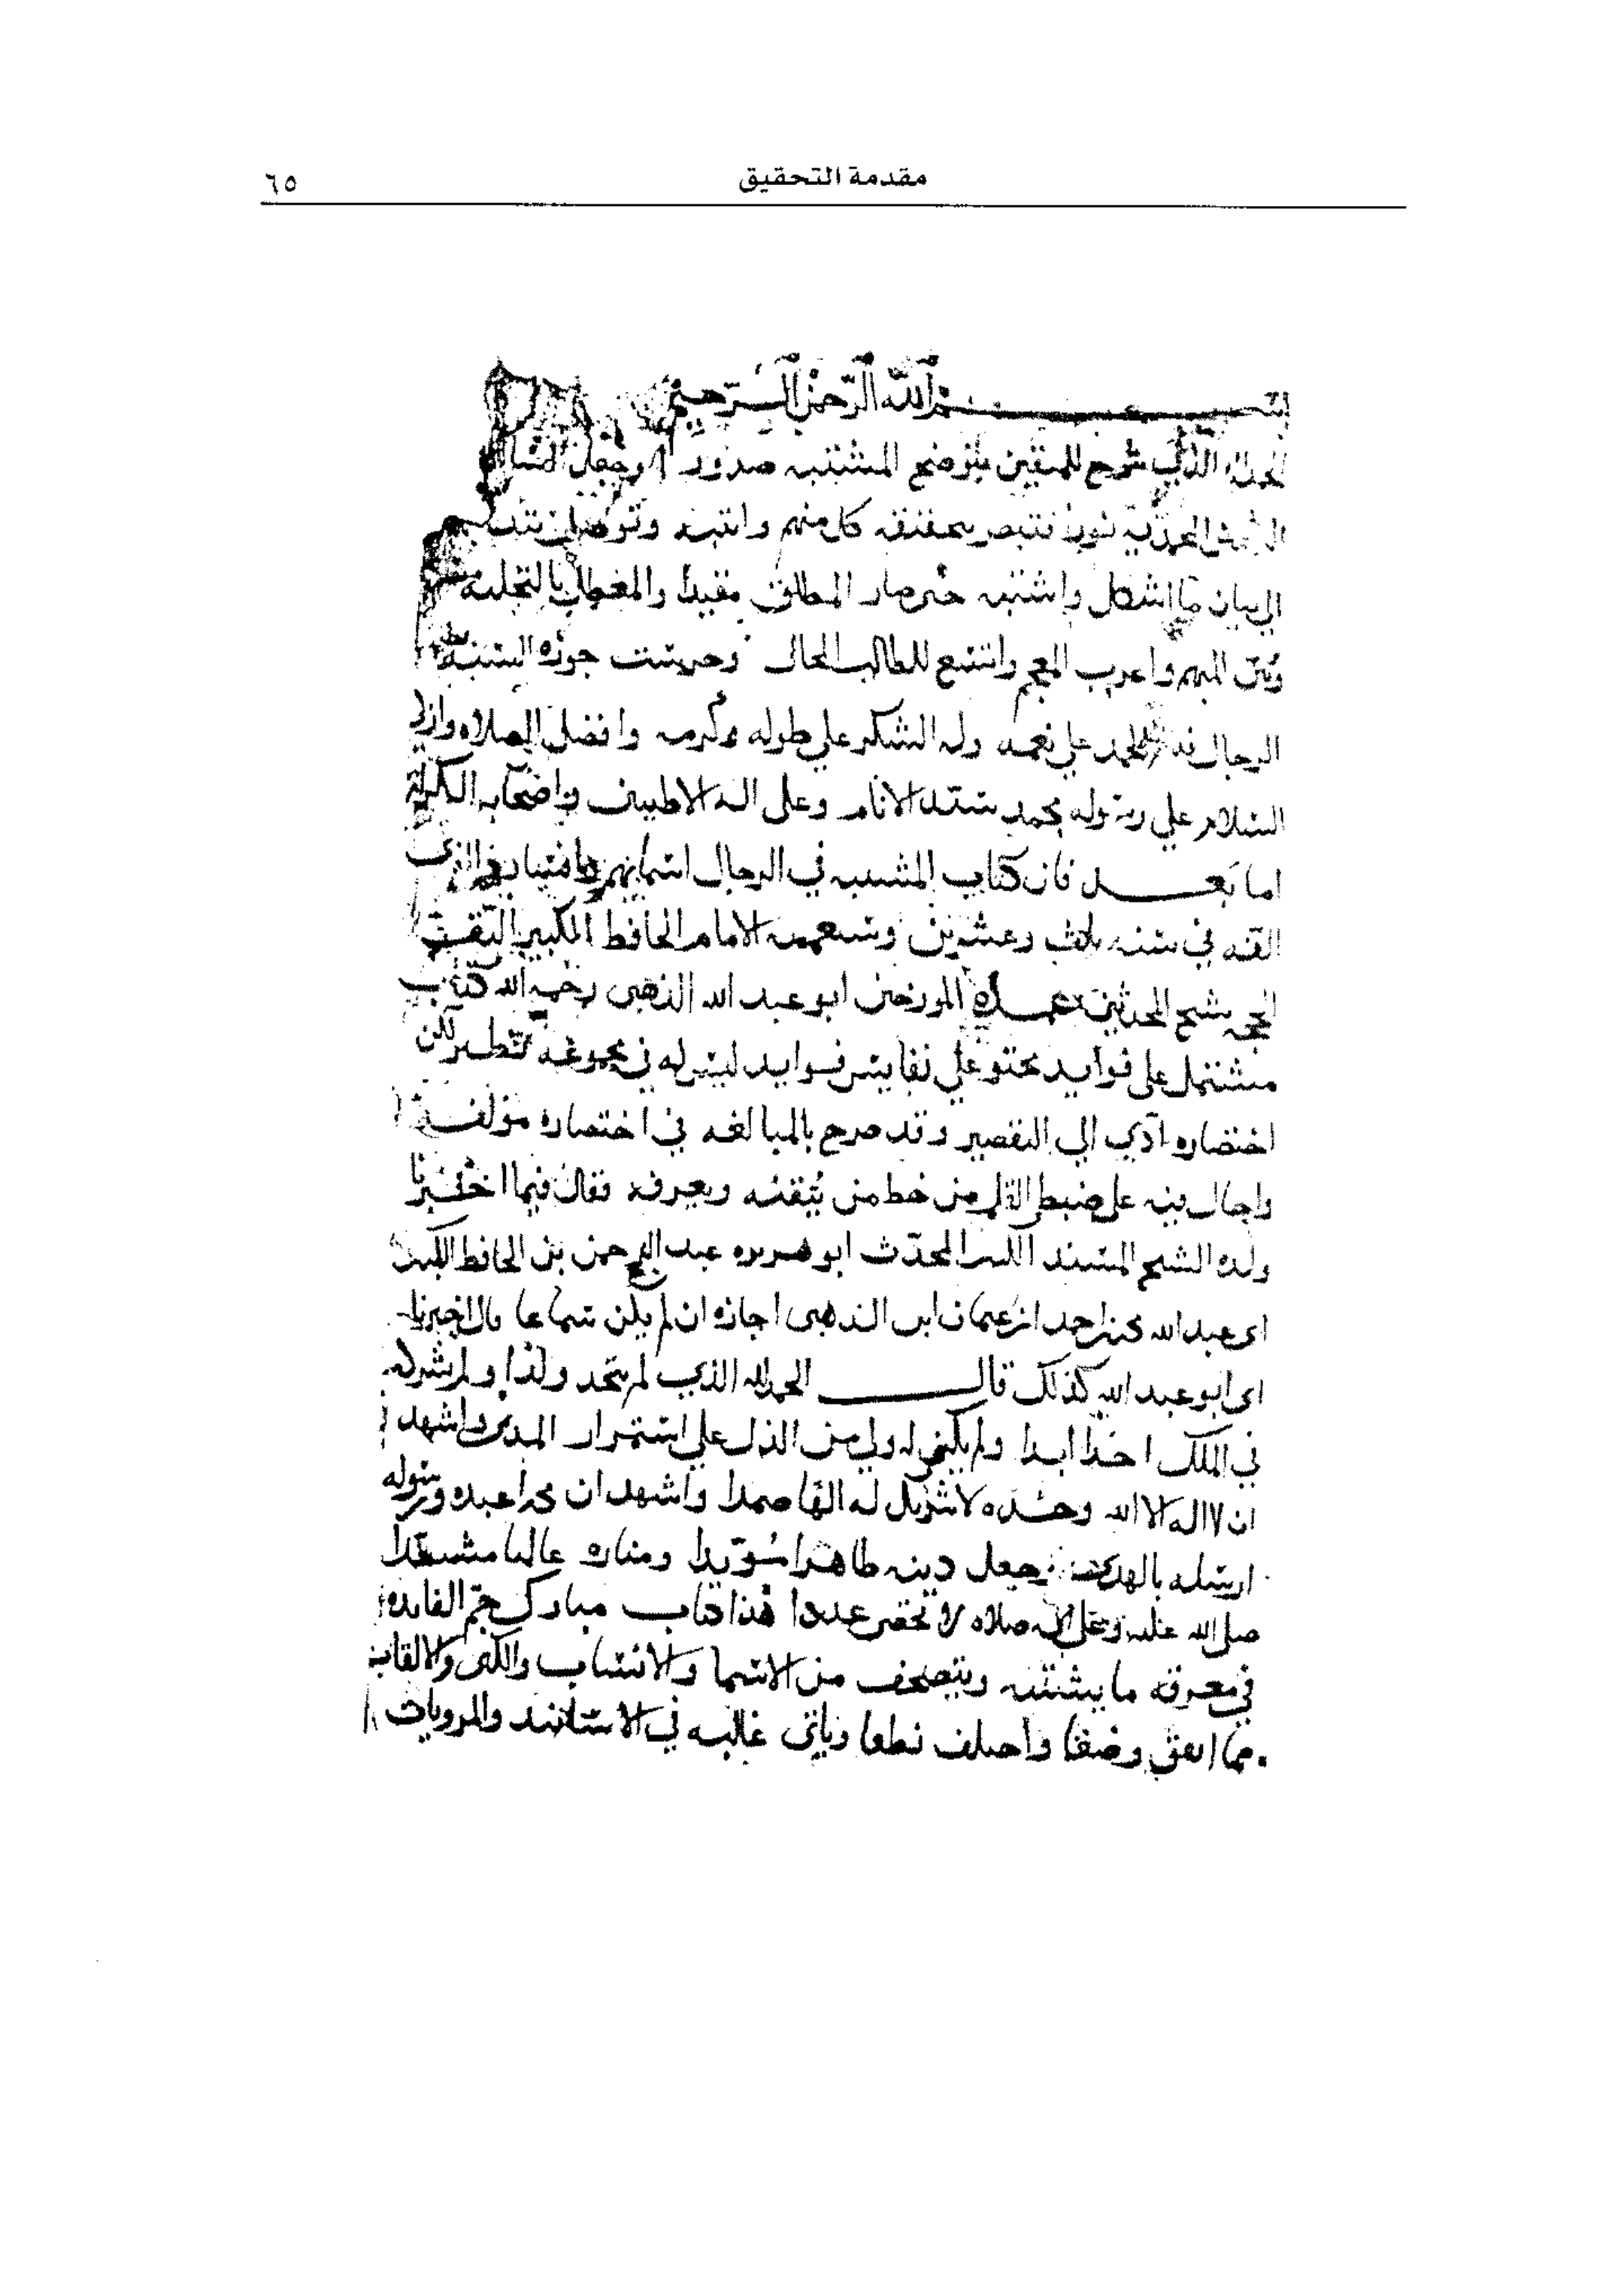 مقدمة التحقيق
٦٥
بسم الله الرحمن الرحيم
الحمد لله الذي شرح للمتقين بتوضيح المشتبه صدورا وجعل
كل منهم وانتبه
الى بيان ما اشكل واشتبه حتى صار المطلق مقيدا والمغطا بالتجلية
المبهم واعرب المعجم واتسع للطالب المجال وحرست حوزه السنه
الرجال فلله الحمد على نعمه وله الشكر على طوله وكرمه وافضل الصلاه وازكى
السلام على رسوله محمد سيد الانام وعلى اله الاطيبين واصحابه الكرام
اما بعد فان كتاب المشتبه في الرجال اسمايهم وانسابهم الذى
الفه في سنه ثلث وعشرين وسبعمىه الامام الحافظ الكبير الثقه
الحجه شيخ المحدثين عمده المورخين ابو عبد الله الذهبى رحمه الله كتاب
مشتمل على فوايد محتو على نفايس فرايد ليس له في مجموعه نظير لكن
اختصاره ادي الي التقصير وقد صرح بالمبالغه في اختصاره مؤلفه
واحال فيه على ضبط القلم من خط من يتقنه ويعرفه فقال فيما اخبرنا
ولده الشيخ المسند المحدث ابو هريره عبد الرحمن بن الحافظ الكبير
ابى عبد الله محمد بن احمد بن عثمان ابن الذهبى اجازه ان لم يكن سماعا قال اخبرنا
ابى ابو عبد الله كذلك قال الحمد لله الذي لم يتخذ ولدا ولم يشرك
في الملك احدا ابدا ولم يكن له ولي من الذل على استمرار المدى واشهد
ان لا اله الا الله وحده لا شريك له الها صمدا واشهد ان محمدا عبده ورسوله
ارسله بالهدى وجعل دينه طاهرا مؤيدا ومناره عاليا مشيدا
صلى الله عليه وعلى اله صلاه لا تحصى عددا هذا كتاب مبارك جم الفايده
في معرفه ما يشتبه ويتصحف من الاسما والانساب والكنى والالقاب
مما اتفق وضعا واختلف نطقا وياتى غالبه في الاسانيد والمرويات